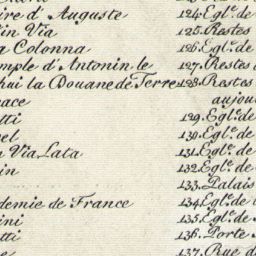 ire d'Auguste
in Via
a Colonna
mple d'Antonin le
'hui la Douane de Terre
ace
tti
el
Via Lata
in
démie de France
ini
tti
124. Egl.e de
125. Restes
126. Egl.e de
127. Restes
128. Restes
aujou
129. Egl.e de
130. Egl.e de
131. Egl.e de
132. Egl.e de
133. Palais
134. Egl.e de
135. Egl.e de
136. Porte
137. Rue d